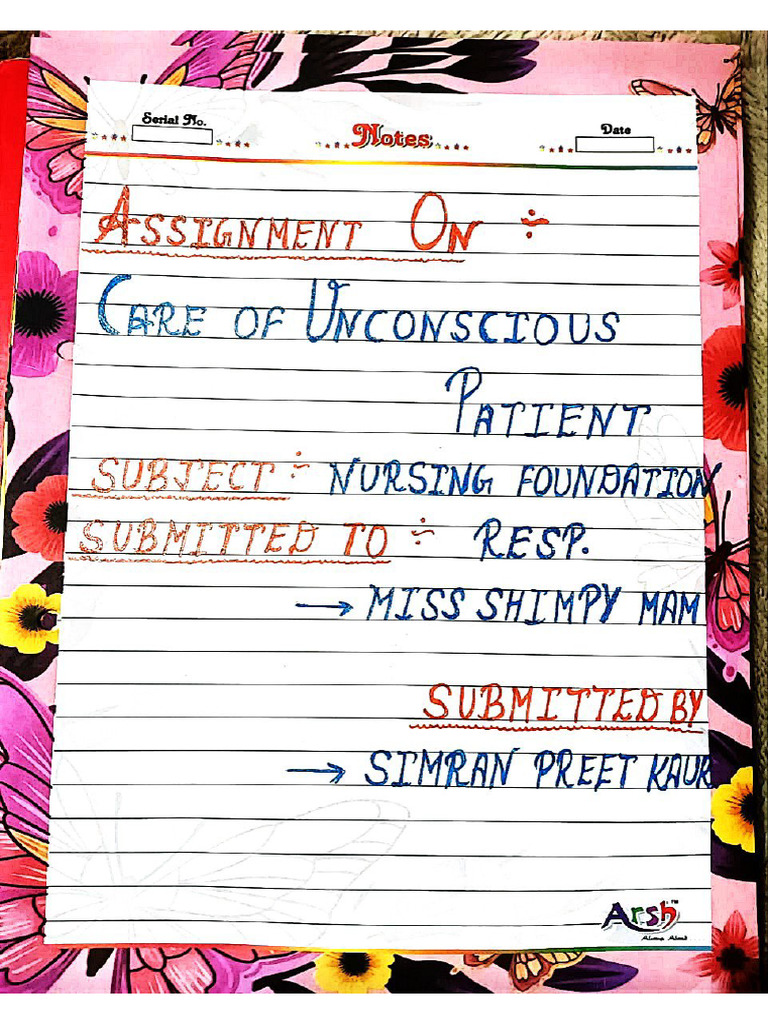 Serial No.
Notes
Date
ASSIGNMENT ON ÷
CARE OF UNCONSCIOUS
PATIENT
SUBJECT ÷ NURSING FOUNDATION
SUBMITTED TO ÷ RESP.
→ MISS SHIMPY MAM
SUBMITTED BY
→ SIMRAN PREET KAUR
Arsh™